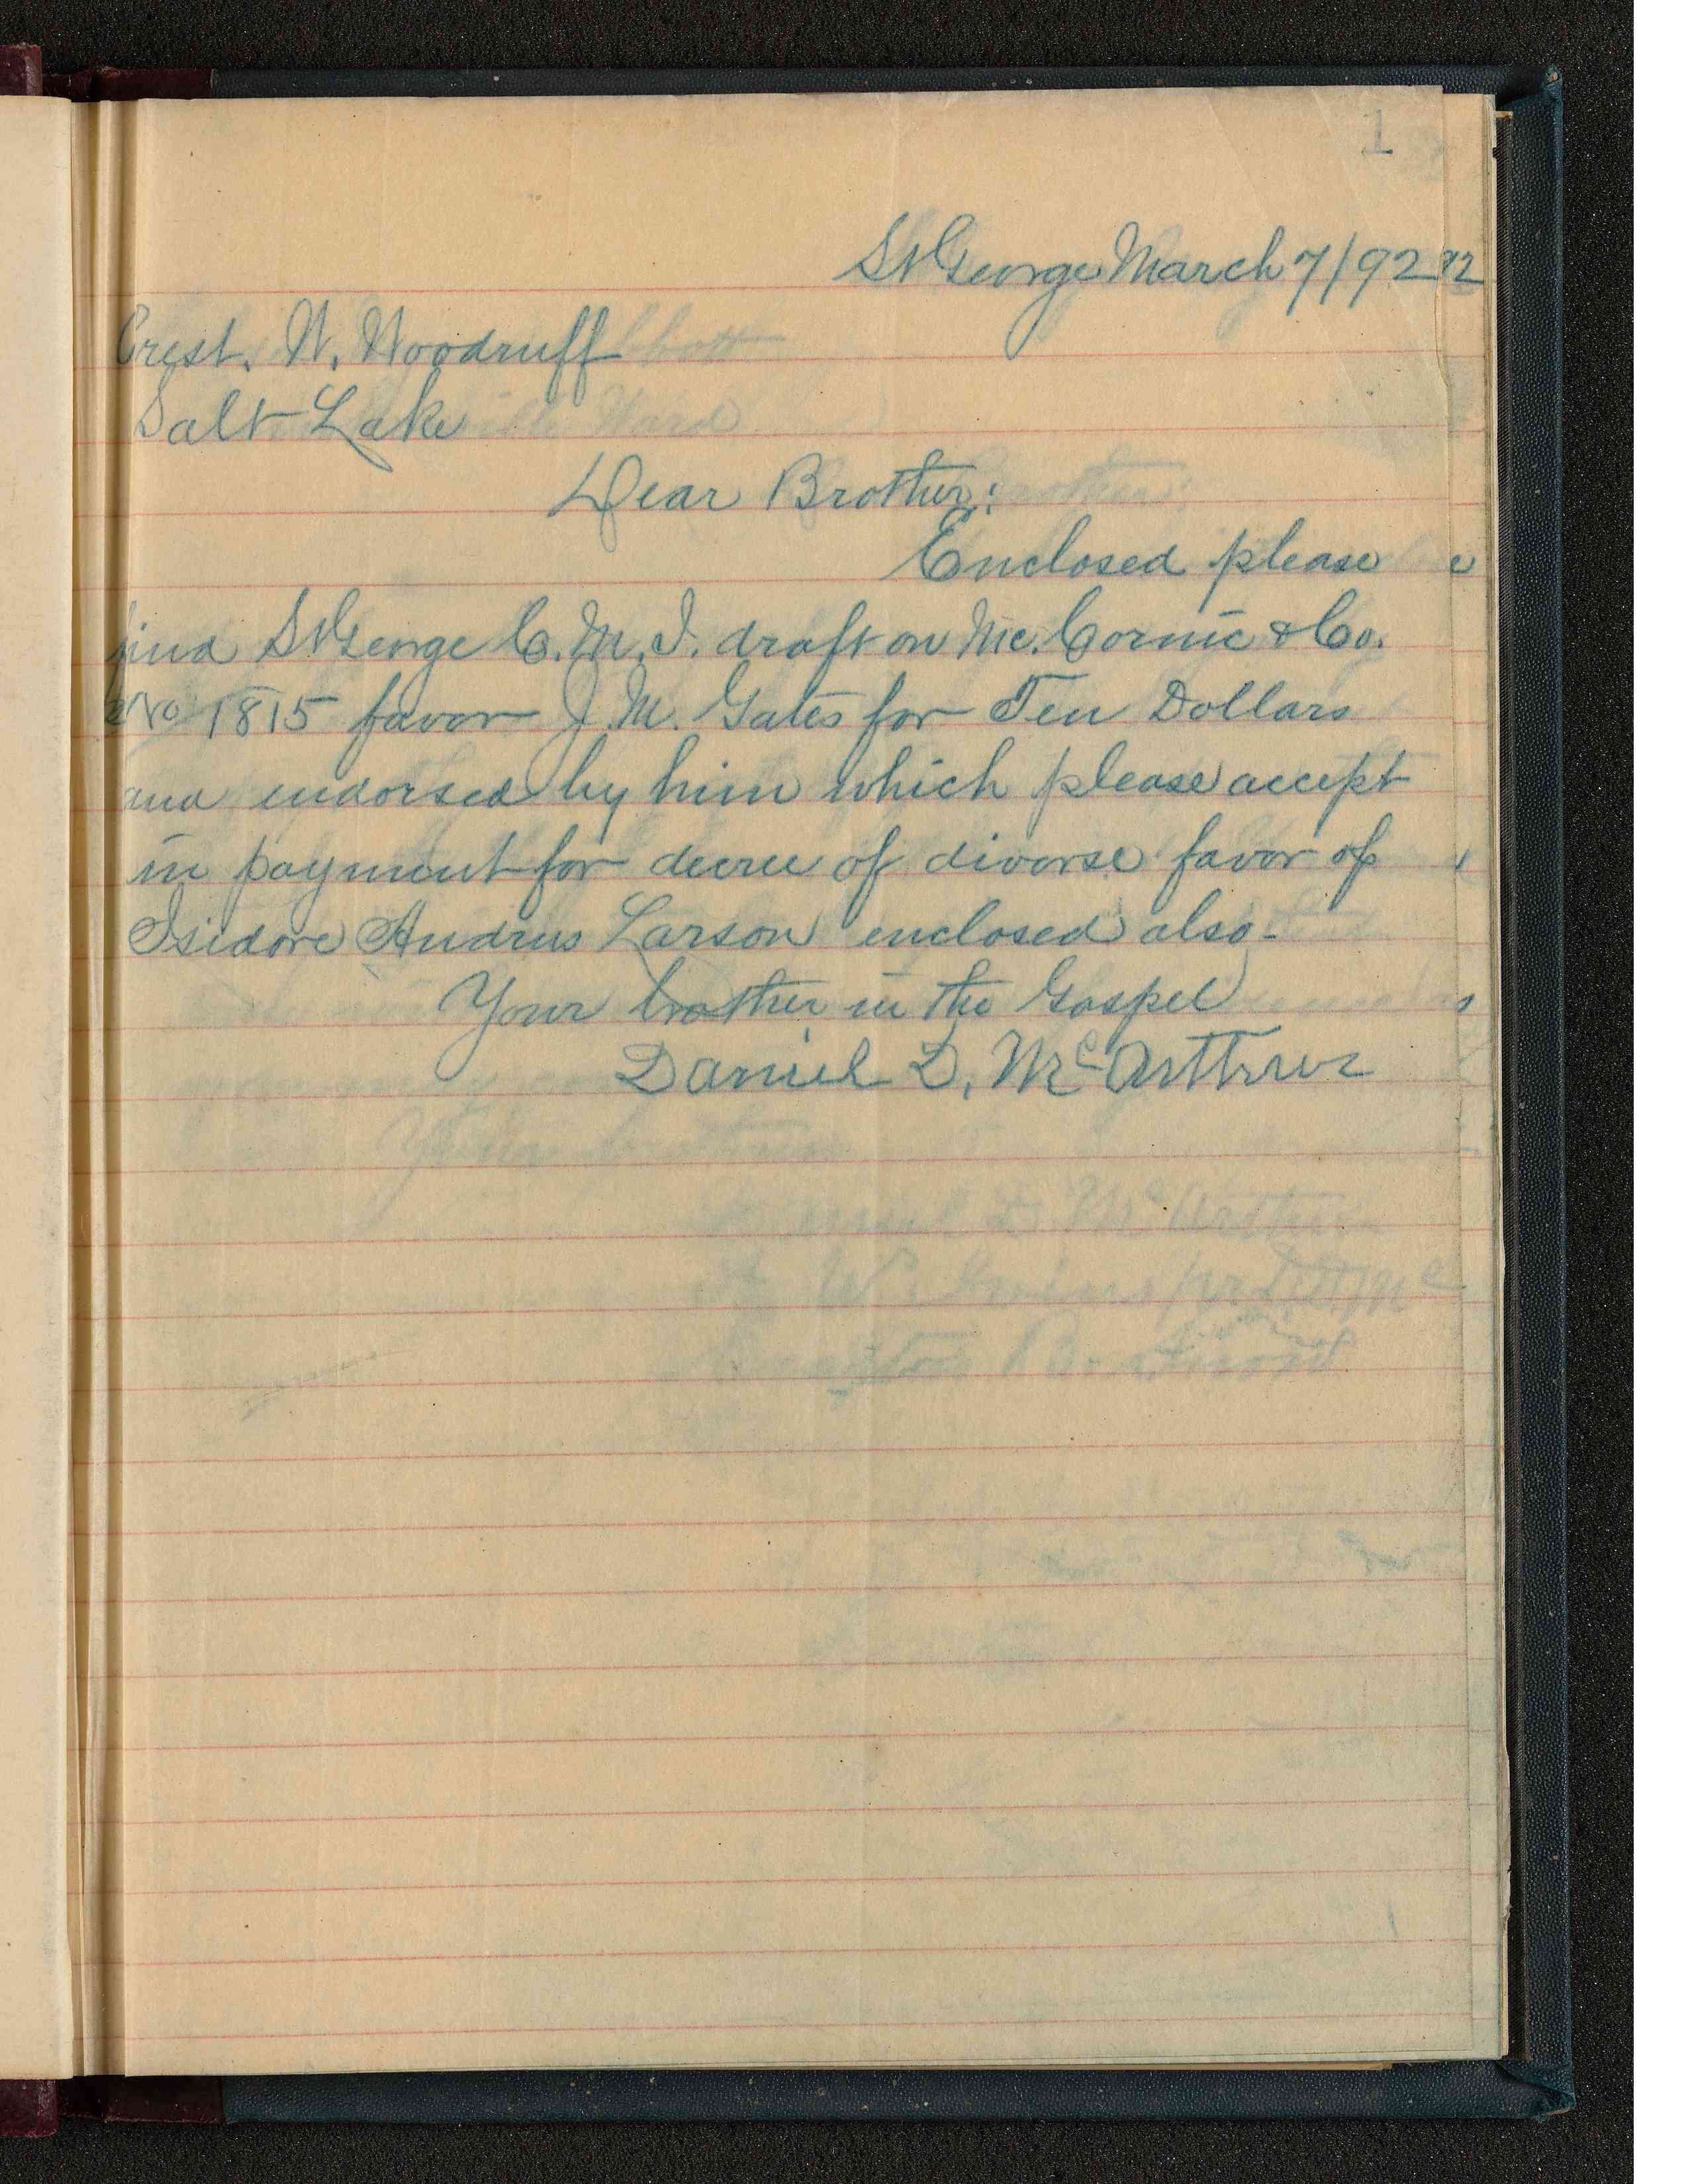 1
St George March 7/92
Prest. W. Woodruff
Salt Lake
Dear Brother:
Enclosed please
find St George C. M. I. draft on Mc. Cornic & Co.
No 1815 favor J. M. Gates for Ten Dollars
and endorsed by him which please accept
in payment for decree of divorse favor of
Isidore Andrus Larson enclosed also-
Your brother in the Gospel
Daniel D. McArthur